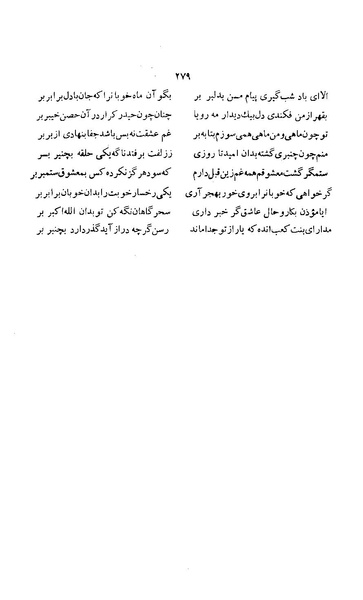 ۲۷۹
الا ای باد شب‌گیری پیام مسن بدلبر بر بگو آن ماه خوبانرا که جان بادل برابر بر
بقهر از من فکندی دل بیک دیدار مه رویا چنان چون حیدر کرار در آن حصن خیبر بر
تو چون ماهی و من ماهی همی سوزم بتابه بر غم عشقت نه بس باشد جفا بنهادی از بر بر
منم چون چنبری گشته بدان امید تا روزی ز زلفت برفتد ناگه یکی حلقه بچنبر بسر
ستمگر گشت معشوقم همه غم زین قبل دارم که سود هر گز نکرده کس بمعشوق ستمبر بر
گر خواهی که خوبانرا بروی خود بهجر آری یکی رخسار خوبت را بدان خوبان برابر بر
ایا مؤذن بکار و حال عاشق گر خبر داری سحر گاهان نگه کن تو بدان الله اکبر بر
مدار ای بنت کعب انده که یار از تو جدا ماند رسن گر چه دراز آید گذر دارد بچنبر بر